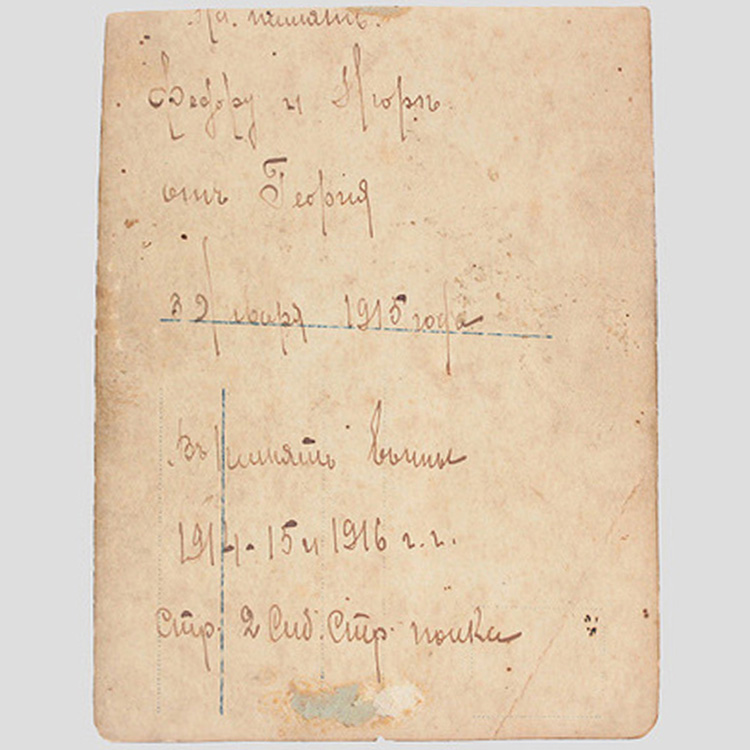 На память.
Федору и Нюрѣ
отъ Георгія
1915 года
Въ память войны
1914 - 15 и 1916 г.г.
Стр. 2 Сиб. Стр. полка